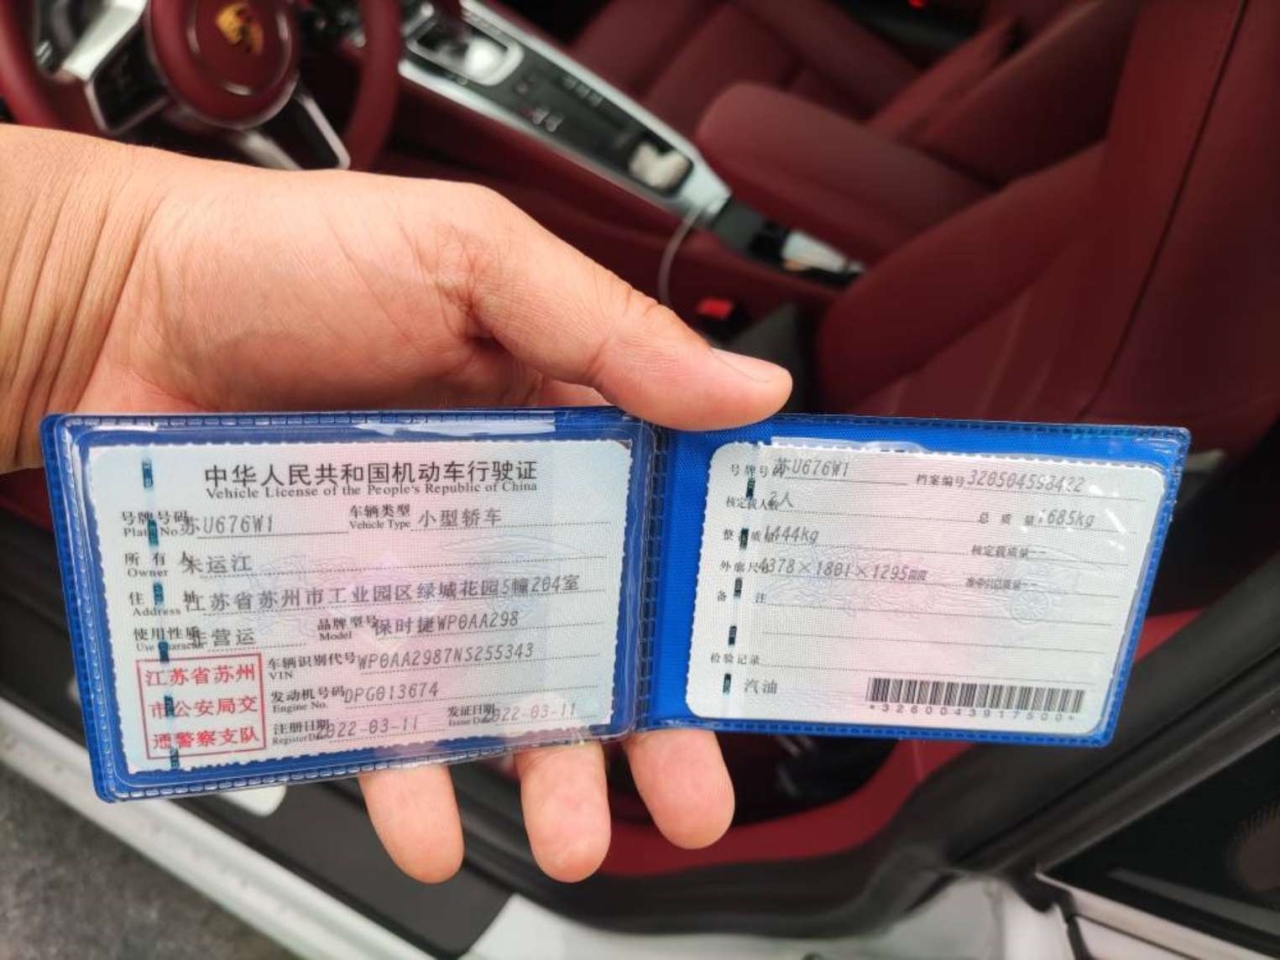 中华人民共和国机动车行驶证
Vehicle License of the People's Republic of China
号牌号码 苏U676W1 车辆类型 小型轿车
Plate No. Vehicle Type
所有人 朱运江
Owner
住址 江苏省苏州市工业园区绿城花园5幢204室
Address
使用性质 非营运 品牌型号 保时捷WP0AA298
Use Character Model
车辆识别代号 WP0AA2987NS255343
VIN
发动机号码 DPG013674
Engine No.
注册日期 2022-03-11 发证日期 2022-03-11
Register Date Issue Date
江苏省苏州
市公安局交
通警察支队
号牌号码 苏U676W1 档案编号 320504593422
核定载人数 2人 总质量 1685kg
整备质量 1444kg 核定载质量 --
外廓尺寸 4378×1801×1295mm 准牵引总质量 --
备注
检验记录
汽油
*3260043917500*